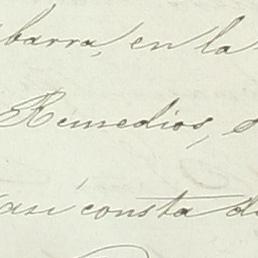 ibarra, en la
Remedios,
así consta de